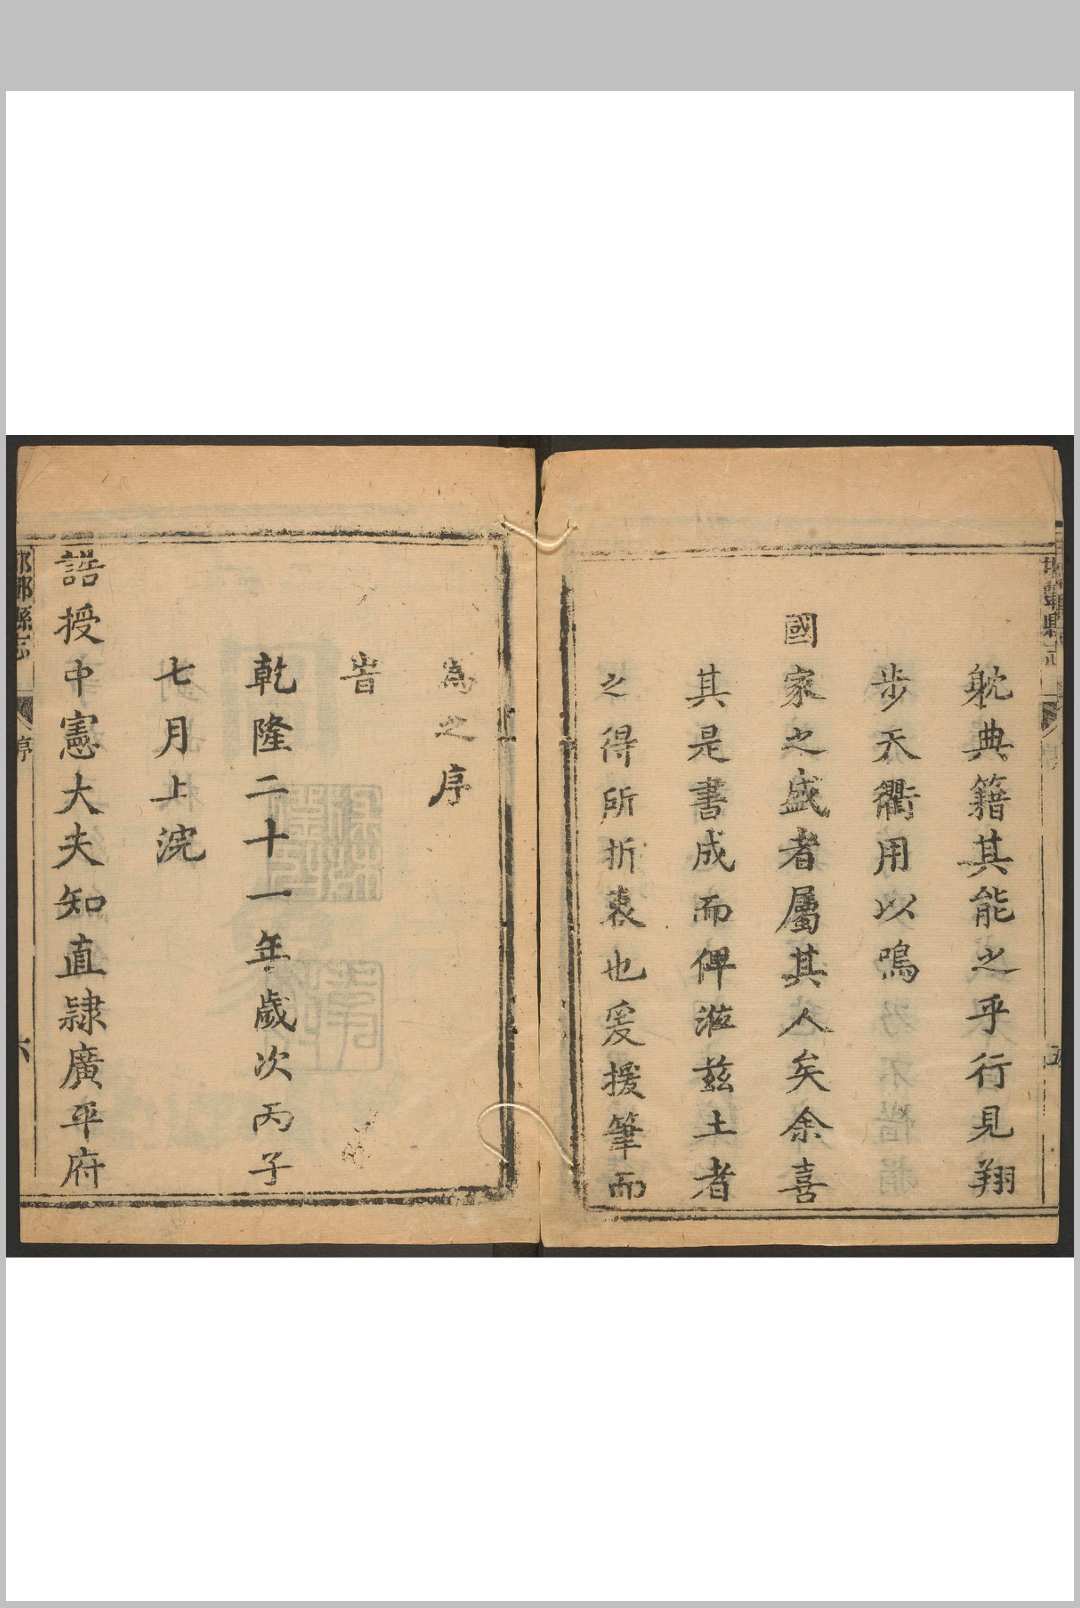 躭典籍其能之乎行見翔
步天衢用以鳴
國家之盛者屬其人矣余喜
其是書成而俾涖茲土者
之得所折衷也爰援筆而
為之序
旹
乾隆二十一年歲次丙子
七月上浣
誥授中憲大夫知直隸廣平府
縣志
序
六